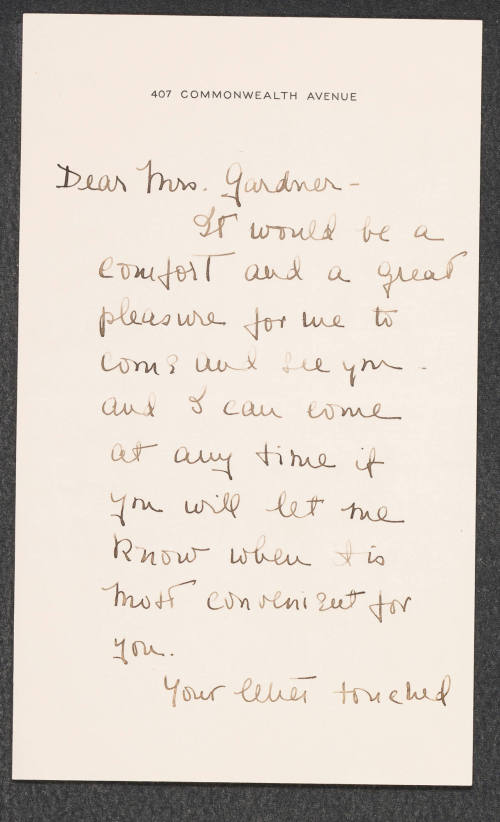 407 COMMONWEALTH AVENUE
Dear Mrs. Gardner -
It would be a
comfort and a great
pleasure for me to
come and see you -
and I can come
at any time if
you will let me
know when it is
most convenient for
you.
Your letter touched